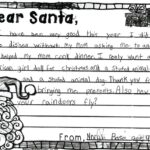 Dear Santa,
I have been very good this year I did
the dishes without my mom asking me to and
helped my mom cook dinner. I really want an
American girl doll for christmas and a stuffed animal
and a stuted animal dog. Thank you for
bringing me presents. Also how
do your raindeers fly?
From,